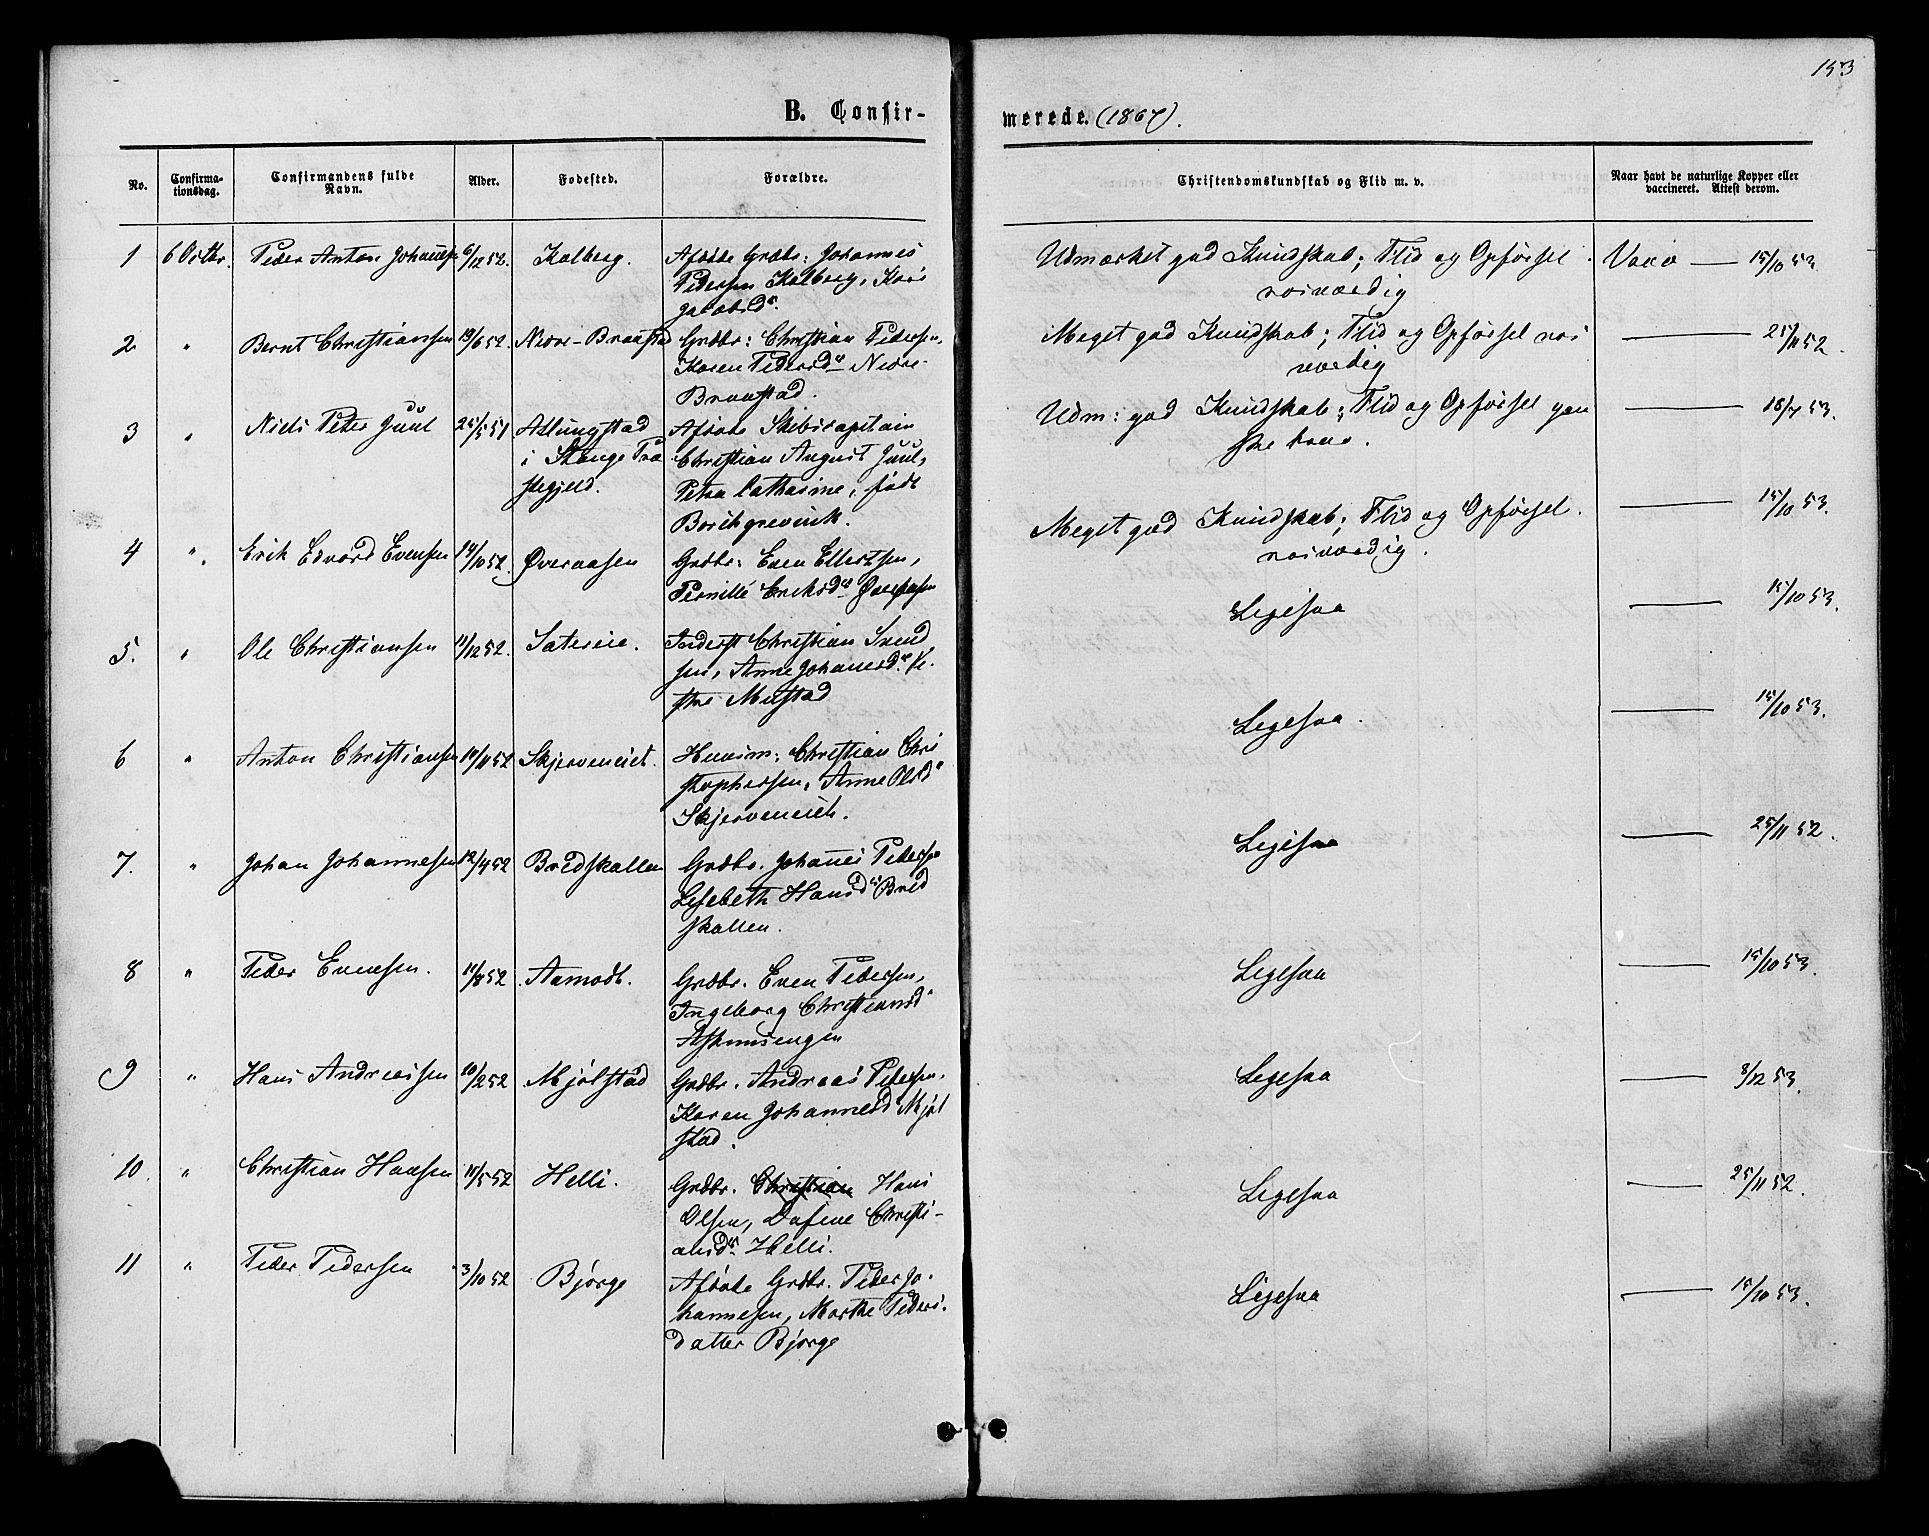 153
B. Confir-
merede. (1867).
No.
Confirma-
tionsdag.
Confirmandens fulde
Navn.
Alder.
Fødested.
Forældre.
Christendomskundskab og Flid m. v.
Naar havt de naturlige Kopper eller
vaccineret. Attest derom.
1 6 Octbr. Peder Anton Johannesen 6/12 52. Kalberg. Afdøde Grdbr: Johannes
Pedersen Kalberg, Kari
Jacobsdr
Udmærket god Kundskab; Flid og Opførsel
rosværdig
Vacc — 15/10 53
2 " Bernt Christiansen 19/6 52. Nedre-Braastad Grdbr: Christian Pedersen,
Karen Pedersdr Nedre-
Braastad.
Meget god Kundskab; Flid og Opførsel ros
værdig
— 25/11 52.
3 " Niels Peter Juul 25/5 51 Atlungstad
i Stange Præ
stegjeld.
Afdøde Skibscapitain
Christian August Juul,
Petra Cathrine, født
Borchgrevink.
Udm: god Kundskab; Flid og Opførsel gan
ske brav.
— 18/7 53.
4 " Erik Edvard Evensen 14/10 52. Øveraasen Grdbr: Even Ellertsen,
Pernille Eriksdr Øveraasen
Meget god Kundskab; Flid og Opførsel.
rosværdig.
— 15/10 53.
5. " Ole Christiansen 11/12 52. Sætereie. Inderst Christian Svend
sen, Anne Johannesdr. Ve
stre Mustad
Ligesaa
— 15/10 53.
6 " Anton Christiansen 19/11 52 Skjerveneiet. Huusm: Christian Chri
stophersen, Anne Olsdr
Skjerveneiet.
Ligesaa.
— 15/10 53.
7. " Johan Johannesen 12/4 52 Bredskallen Grdbr. Johannes Pedersen
Lisebeth Hansdr Bred
skallen.
Ligesaa
— 25/11 52.
8 " Peder Evensen. 11/8 52. Aamodt. Grdbr. Even Pedersen,
Ingeborg Christiansdr
Askimsengen
Ligesaa
— 15/10 53.
9 " Hans Andreassen 10/2 52 Mjølstad Grdbr. Andreas Pedersen,
Karen Johannesdr Mjøl
stad.
Ligesaa
— 8/12 53.
10. " Christian Hansen 11/5 52 Helli. Grdbr. Christian Hans
Olsen, Dafine Christi-
ansdr. Helli.
Ligesaa
— 25/11 52.
11 " Peder Pedersen 3/10 52 Bjørge Afdøde Grdbr. Peder Jo-
hannesen, Marthe Peders-
datter Bjørge
Ligesaa
— 15/10 53.